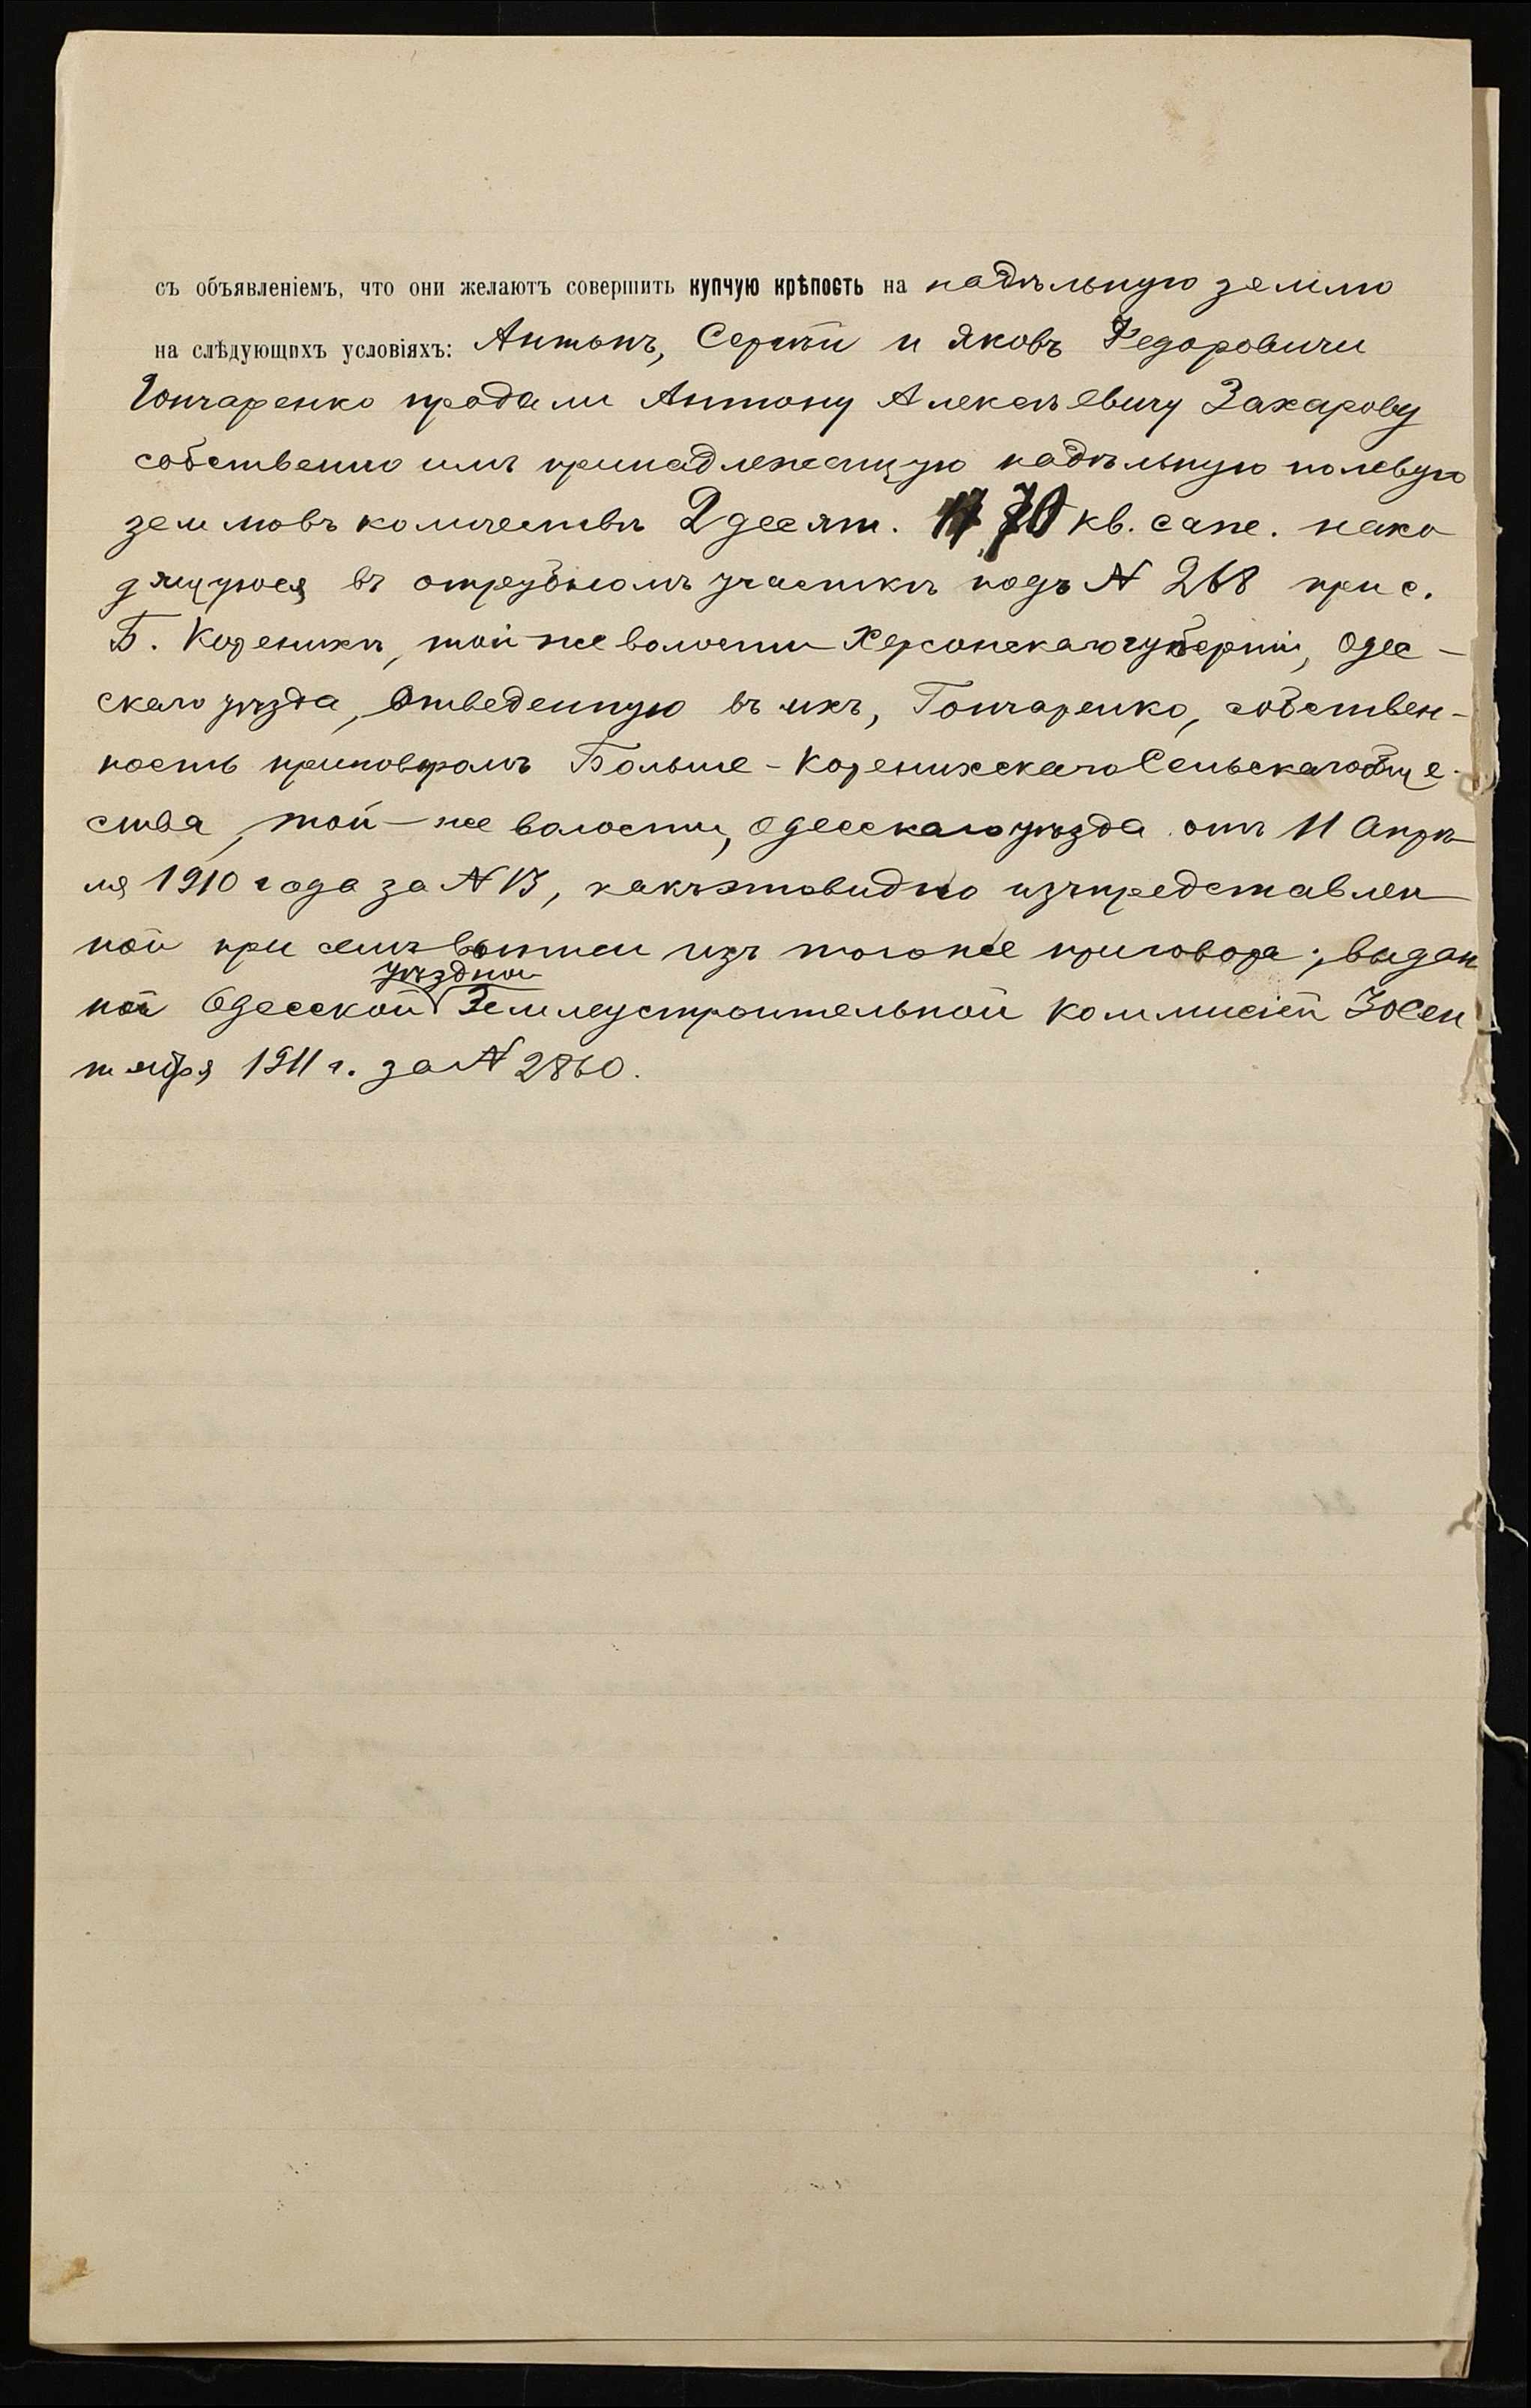 съ объявленіемъ, что они желаютъ совершить купчую крѣпость на надѣльную землю
на слѣдующихъ условіяхъ: Антонъ, Сергѣй и Яковъ Федоровичи
Гончаренко продали Антону Алексѣевичу Захарову
собственно имъ принадлежащую надѣльную полевую
землю въ количествѣ 2 десят. 70 кв. саж. нахо
дящуюся въ отрубномъ участкѣ подъ № 268 при с.
Б. Коренихѣ, той же волости Херсонскаго губерніи, Одес-
скаго уѣзда, отведенную въ ихъ, Гончаренко, собствен-
ность приговоромъ Больше-Коренихскаго Сельскаго обще-
ства, той-же волости, Одесскаго уѣзда отъ 11 Апрѣ-
ля 1910 года за № 13, какъ это видно изъ представлен
ной при семъ выписи изъ того же приговора, выдан
уѣздной
ной Одесской Землеустроительной Коммиссіей 30 Сен
тября 1911 г. за № 2860.